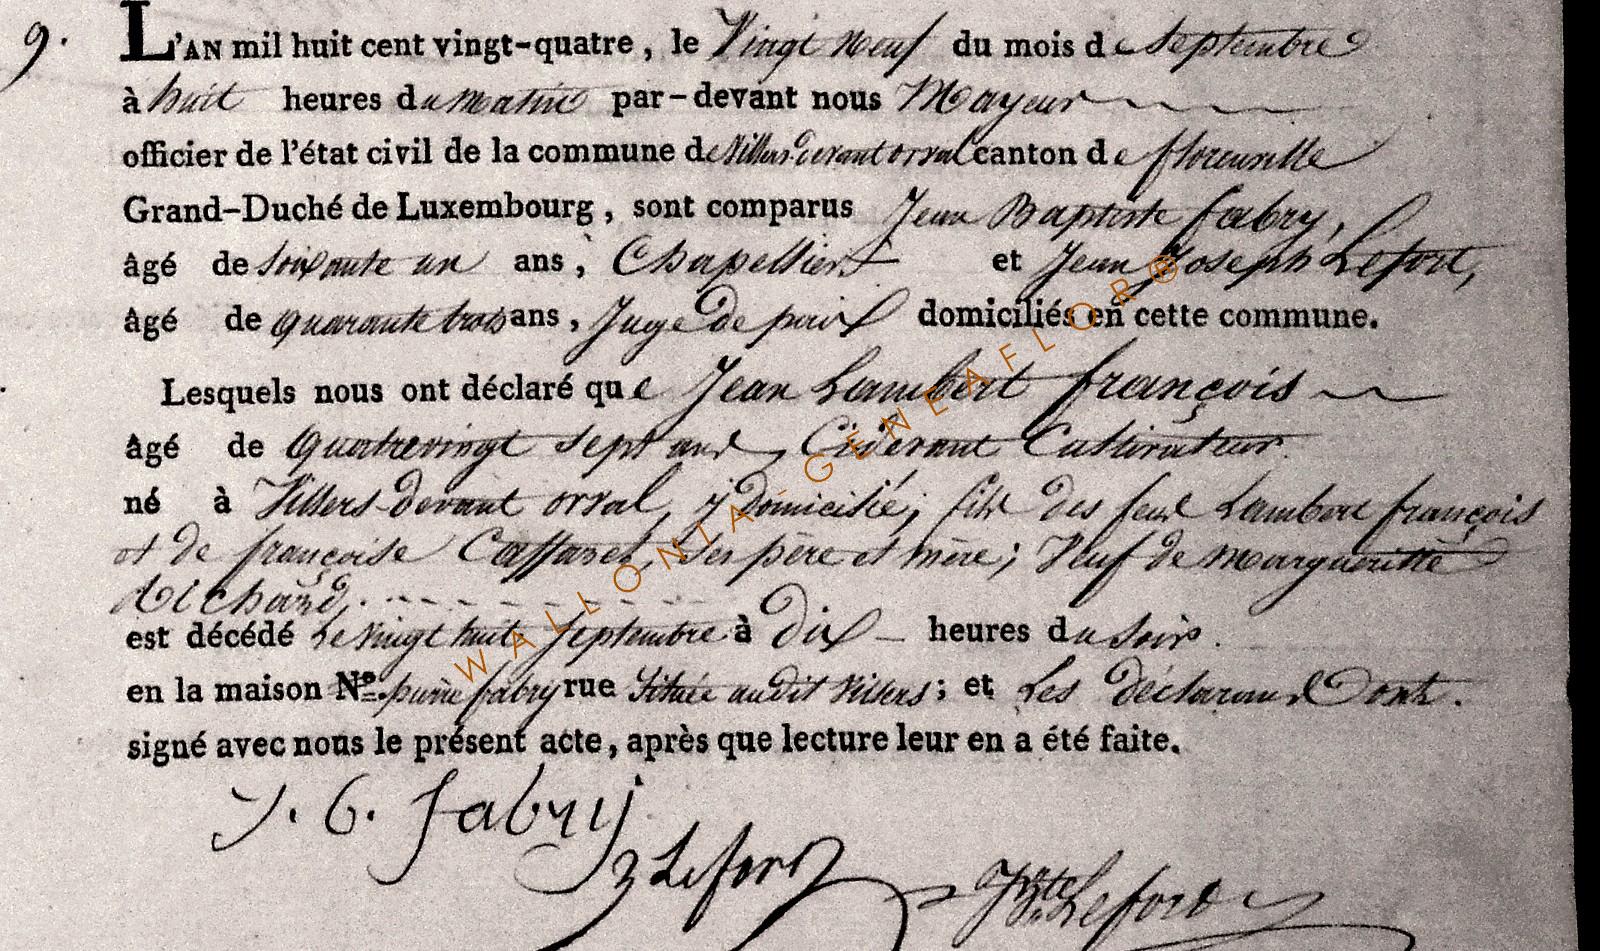 9.
L'AN mil huit cent vingt-quatre, le Vingt Neuf du mois de Septembre
à huit heures du matin par-devant nous Mayeur
officier de l'état civil de la commune de Villers devant orval canton de florenville
Grand-Duché de Luxembourg, sont comparus Jean Baptiste fabry,
âgé de soixante un ans, Chapellier et Jean Joseph Lefort,
âgé de quarante trois ans, Juge de paix domiciliés en cette commune.
Lesquels nous ont déclaré que Jean Lambert françois
âgé de quatrevingt sept ans, Cidevant Cultivateur.
né à Villers-devant orval, y domicilié; fils des feux Lambert françois
et de françoise ses père et mère; Veuf de Margueritte
est décédé le vingt huit Septembre à dix heures du soir.
en la maison Nº. pierre fabry rue Située audit Villers; et Les déclarans ont.
signé avec nous le présent acte, après que lecture leur en a été faite.
J. B. fabry
J Lefort
J Bte Lefort
WALLONIA-GENEAFLOR®